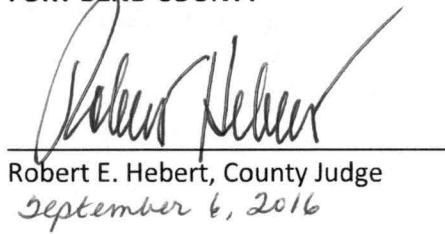 FORT BEND COUNTY
Robert Hebert
Robert E. Hebert, County Judge
September 6, 2016